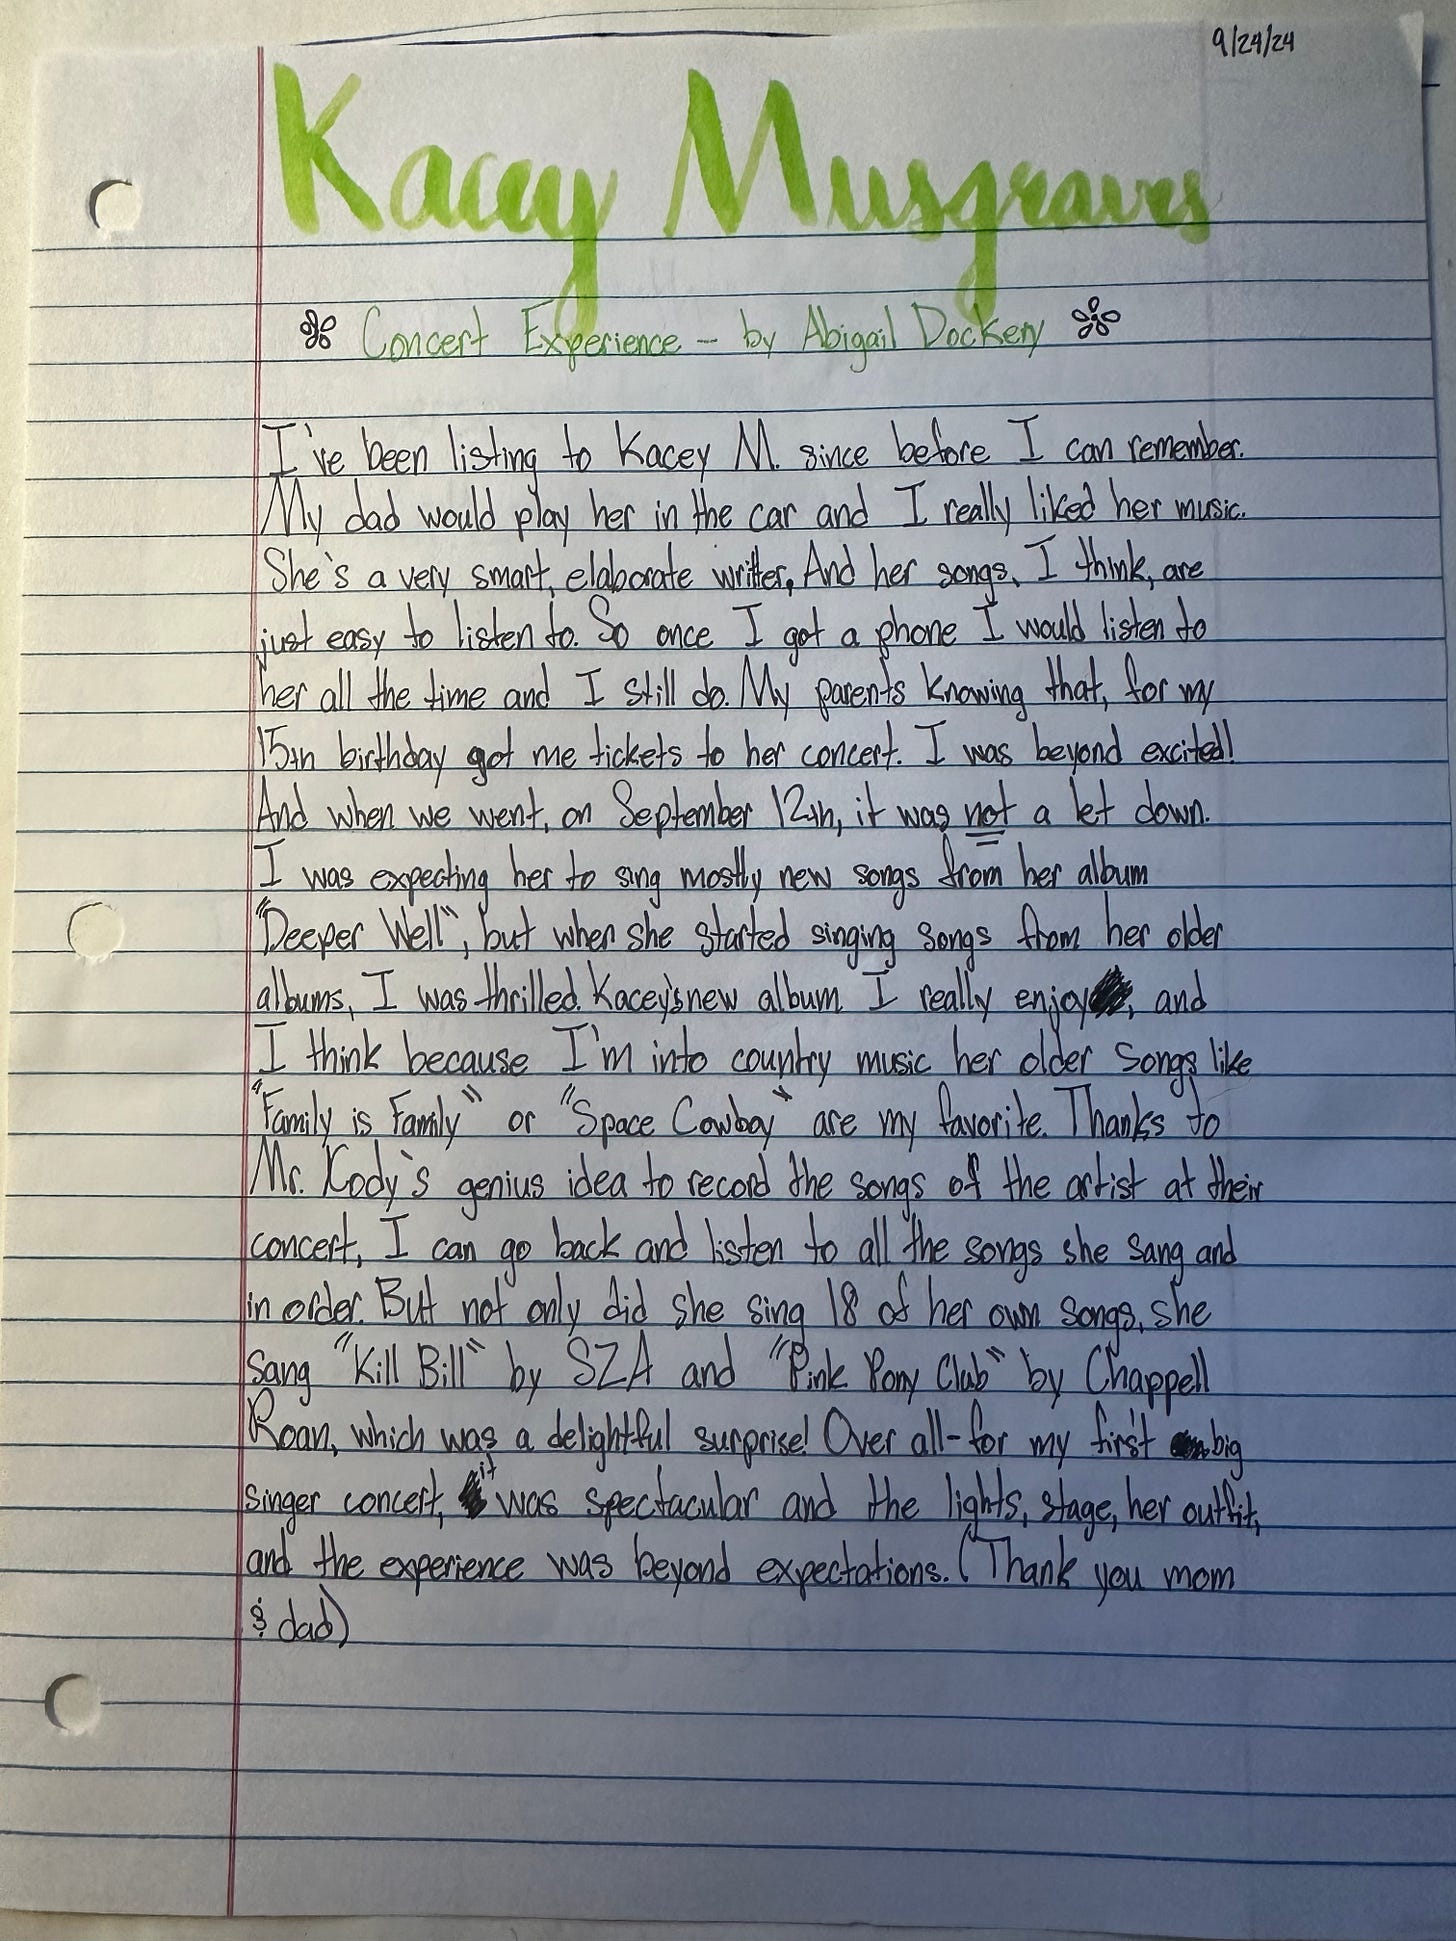 9/24/24
Kacey Musgraves
Concert Experience - by Abigail Dockery
I've been listing to Kacey M. since before I can remember.
My dad would play her in the car and I really liked her music.
She's a very smart, elaborate writter. And her songs, I think, are
just easy to listen to. So once I got a phone I would listen to
her all the time and I still do. My parents knowing that, for my
15th birthday got me tickets to her concert. I was beyond excited!
And when we went, on September 12th, it was not a let down.
I was expecting her to sing mostly new songs from her album
"Deeper Well", but when she started singing songs from her older
albums, I was thrilled. Kacey's new album I really enjoy, and
I think because I'm into country music her older songs like
"Family is Family" or "Space Cowboy" are my favorite. Thanks to
Mr. Kody's genius idea to record the songs of the artist at their
concert, I can go back and listen to all the songs she sang and
in order. But not only did she sing 18 of her own songs, she
sang "Kill Bill" by SZA and "Pink Pony Club" by Chappell
Roan, which was a delightful surprise! Over all-for my first big
singer concert, it was spectacular and the lights, stage, her outfit,
and the experience was beyond expectations. (Thank you mom
& dad)